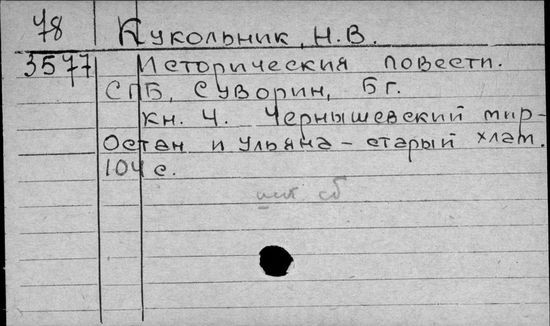 78 Кукольник, Н.В.
3577 Исторические повести.
СПБ, Суворин, Б г.
кн. 4. Чернышевский мир-
Остап и Ульяна – старый хлам.
104 с.